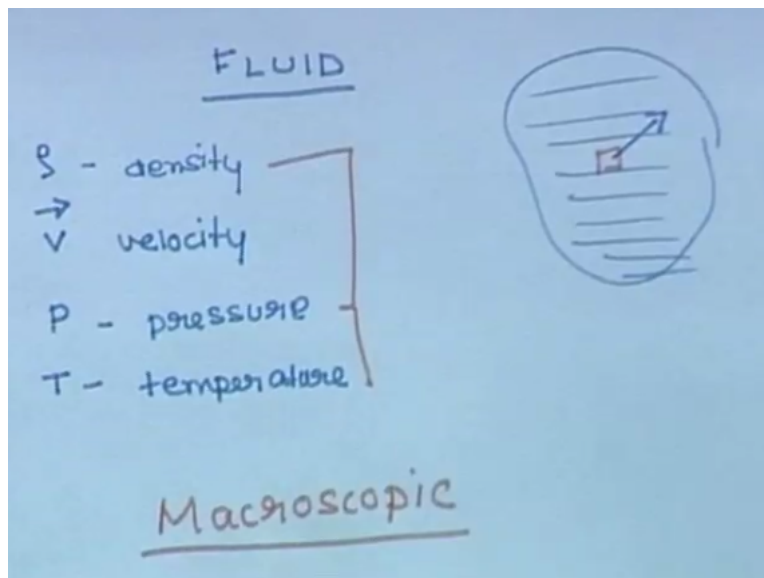 FLUID
ρ - density
V velocity
P - pressure
T - temperature
Macroscopic